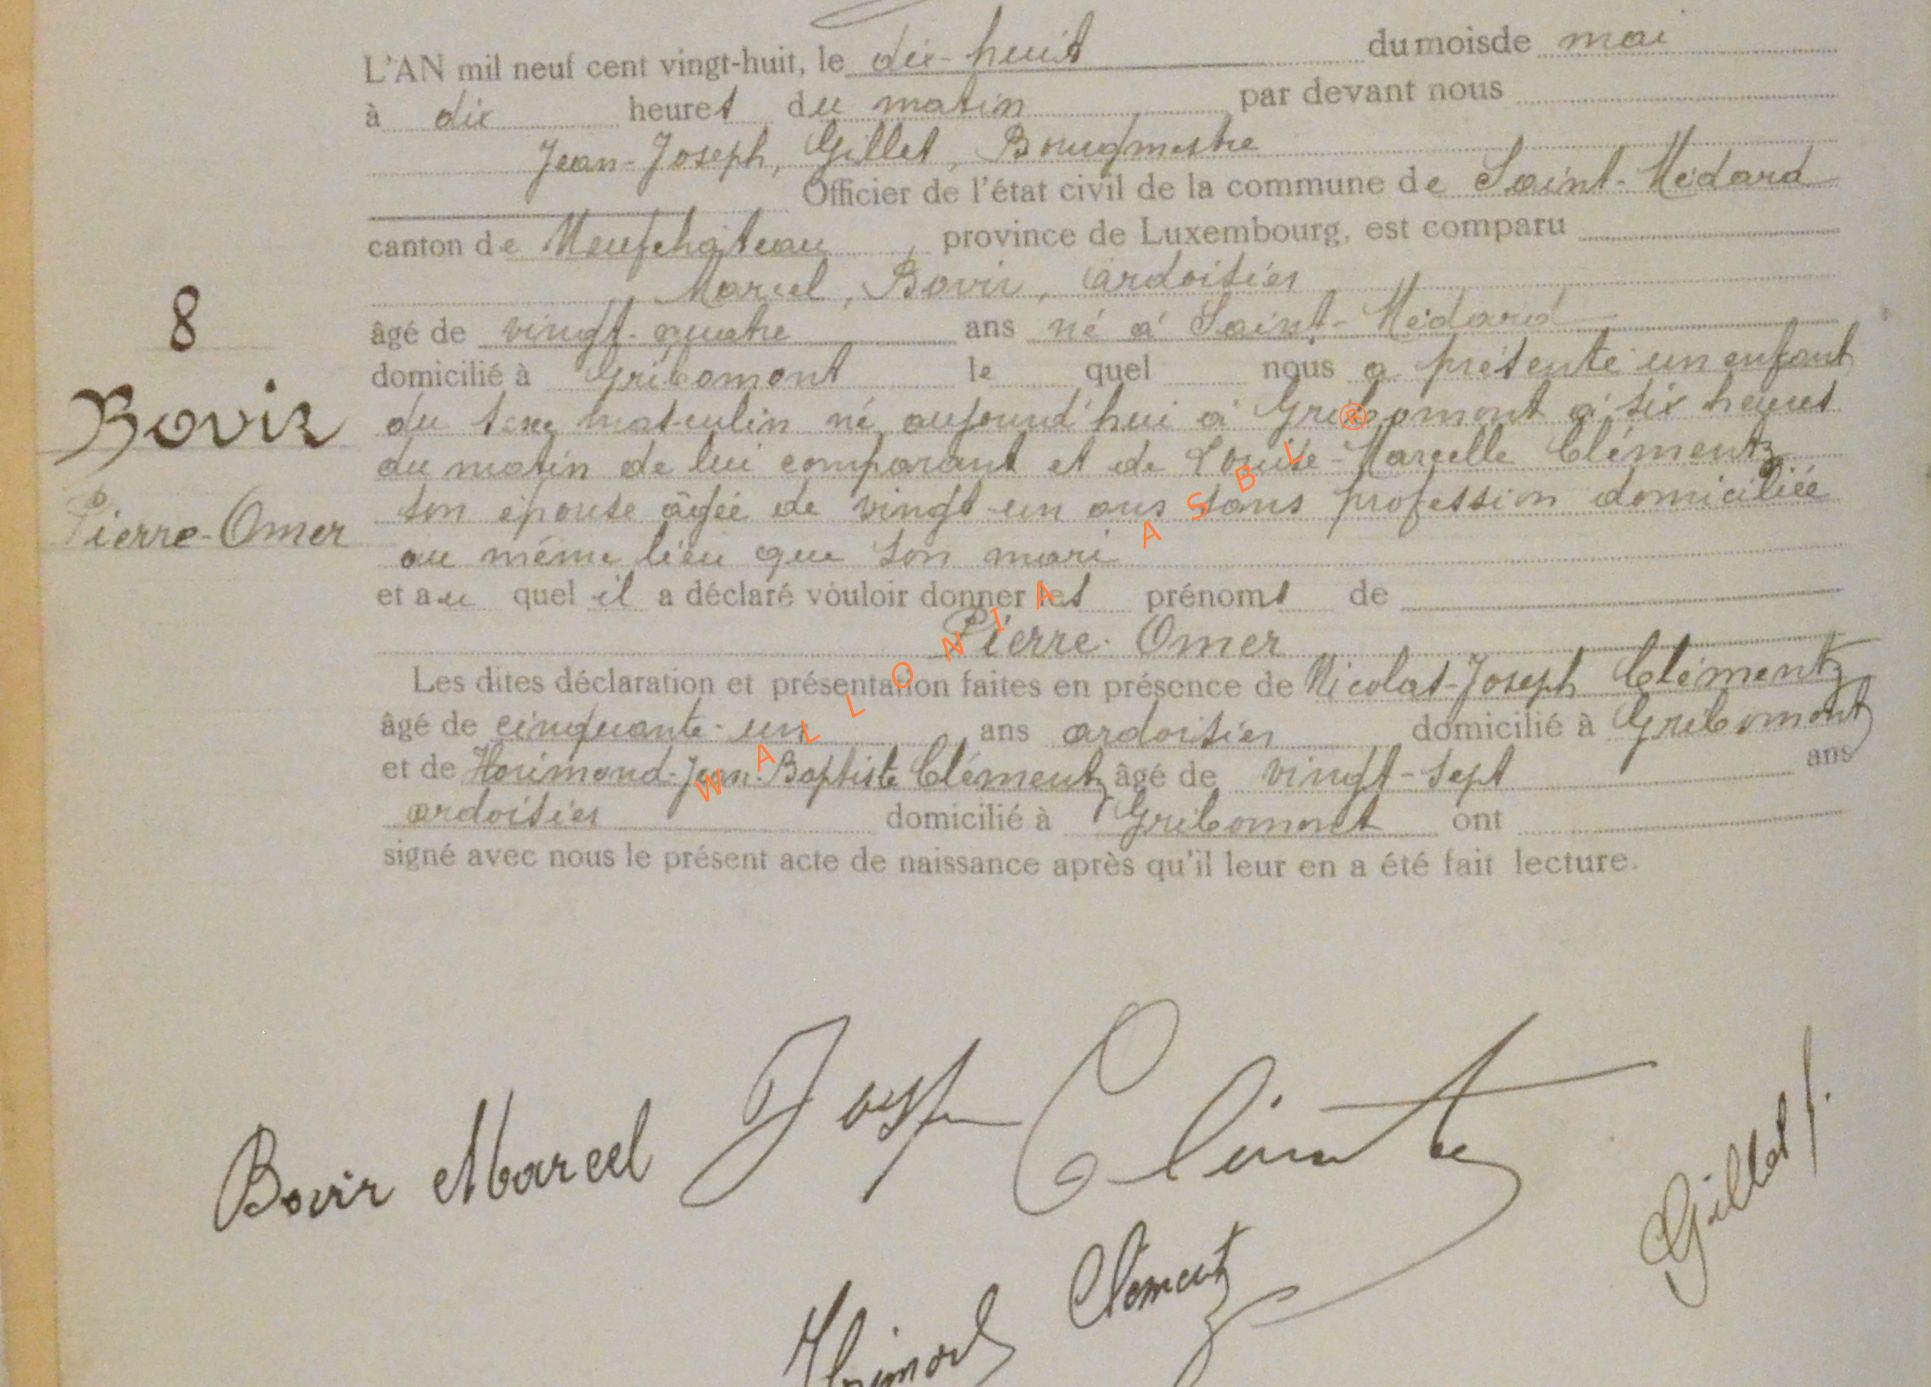 L'AN mil neuf cent vingt-huit, le dix-huit du mois de mai
à dix heures du matin par devant nous
Jean-Joseph, Gillet, Bourgmestre
Officier de l'état civil de la commune de Saint-Médard
canton de Neufchâteau, province de Luxembourg, est comparu
Marcel, Bovir, ardoisier
âgé de vingt-quatre ans né à Saint-Médard
domicilié à Gribomont le quel nous a présenté un enfant
du sexe masculin né aujourd'hui à Gribomont à six heures
du matin de lui comparant et de Louise-Marcelle Clémentz
son épouse âgée de vingt-un ans sans profession domiciliée
au même lieu que son mari
et au quel il a déclaré vouloir donner les prénoms de
Pierre-Omer
Les dites déclaration et présentation faites en présence de Nicolas-Joseph Clémentz
âgé de cinquante-un ans ardoisier domicilié à Gribomont
et de Horimond-Jean-Baptiste Clémentz âgé de vingt-sept ans
ardoisier domicilié à Gribomont ont
signé avec nous le présent acte de naissance après qu'il leur en a été fait lecture.
8
Bovir
Pierre-Omer
WALLONIA ASBL ®
Bovir Marcel
Joseph Clémentz
Gillet J.
Horimond Clémentz